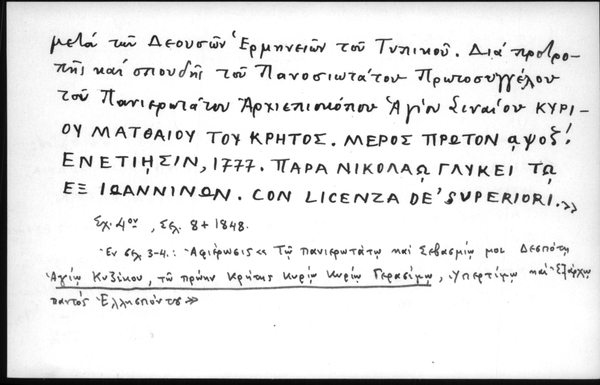 μετά τῶν Δεουσῶν Ἑρμηνειῶν τοῦ Τυπικοῦ. Διά προτρο-
πῆς καί σπουδῆς τοῦ Πανοσιωτάτου Πρωτοσυγγέλου
τοῦ Πανιερωτάτου Ἀρχιεπισκόπου Ἁγίου Σιναίου ΚΥΡΙ-
ΟΥ ΜΑΤΘΑΙΟΥ ΤΟΥ ΚΡΗΤΟΣ. ΜΕΡΟΣ ΠΡΩΤΟΝ ͵αψοζ!
ΕΝΕΤΙῌΣΙΝ, 1777. ΠΑΡΑ ΝΙΚΟΛΑῼ ΓΛΥΚΕΙ Τῼ
ΕΞ ΙΩΑΝΝΙΝΩΝ. CON LICENZA DE' SUPERIORI.»
Σχ. 4ον, Σελ. 8+1848.
Ἐν σελ 3-4.: Ἀφιέρωσις «Τῷ πανιερωτάτῳ καί Σεβασμίῳ μοι Δεσπότῃ
Ἁγίῳ Κυζίκου, τῷ πρώην Κρήτης Κυρίῳ Κυρίῳ Γερασίμῳ, Ὑπερτίμῳ καί Ἐξάρχῳ
παντός Ἑλλησπόντου»